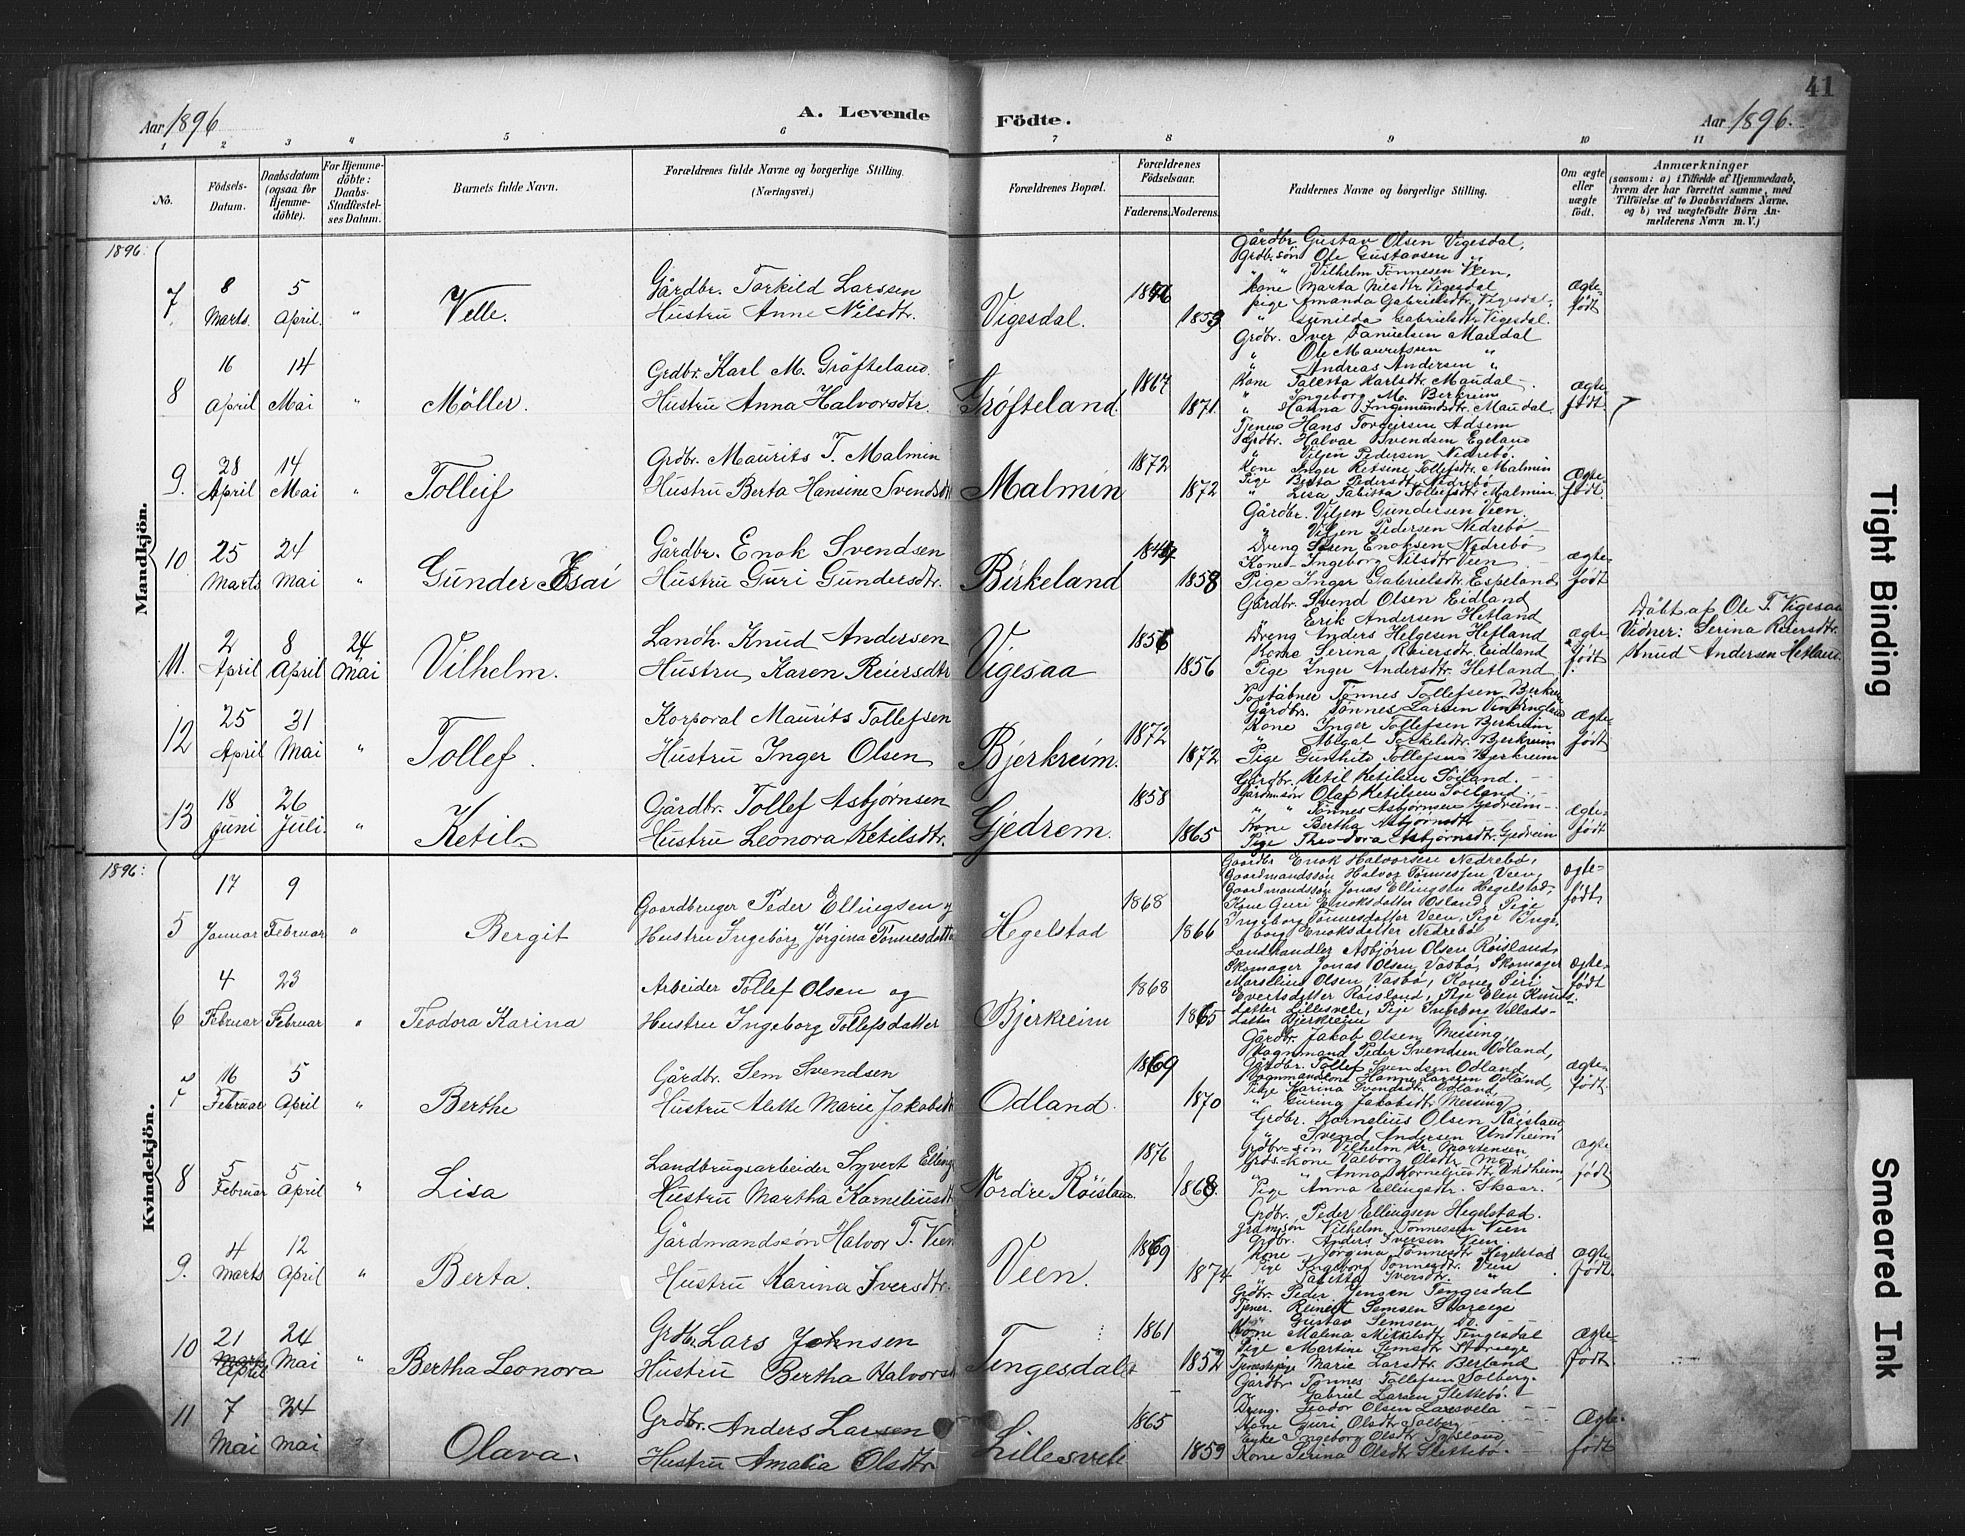 41
Aar 1896
A. Levende Födte.
Aar 1896.
1 2 3 4 5 6 7 8 9 10 11
No.
Födsels-Datum.
Daabsdatum (ogsaa for Hjemme-döbte).
For Hjemme-döbte: Daabs-Stadfæstel-ses Datum.
Barnets fulde Navn.
Forældrenes fulde Navne og borgerlige Stilling. (Næringsvei.)
Forældrenes Bopæl.
Forældrenes Födselsaar.
Faderens. Moderens.
Faddernes Navne og borgerlige Stilling.
Om ægte eller uægte födt.
Anmærkninger
(saasom: a) i Tilfælde af Hjemmedaab,
hvem der har forrettet samme, med
Tilföielse af to Daabsvidners Navne.
og b) ved uægtefödte Börn An-
melderens Navn m. V.)
Mandkjön.
1896.
7 8 Marts. 5 April. " Velle.
Gårdbr. Torkild Larssen
Hustru Anne Nilsdtr.
Vigesdal. 1853
Gårdbr. Gustav Olsen Vigesdal,
Grdbr.søn Ole Gustavsen "
" " Vilhelm Tønnesen Veen,
Kone Marta Nilsdtr Vigesdal
pige Amanda Gabrielsdtr. Vigesdal.
" Gunilda Gabrielsdtr. Vigesdal.
ægte-født
8 16 April 14 Mai " Møller.
Grdbr. Karl M. Grøfteland.
Hustru Anna Halvorsdtr.
Grøfteland. 1867 1871.
Grdbr. Iver Tanuelsen Maudal
" Ole Mauritsen "
" Andreas Andersen "
Kone Talesta Karlsdtr. Maudal
" Ingeborg M. Berkreim
" Hanna Ingemundsdtr. Maudal.
ægte født
9. 28 April 14 Mai " Tolleif
Grdbr. Maurits T. Malmin
Hustru Berta Hansine Svendsdtr
Malmin 1872 1872
Tjener Hans Torgeirsen Adsem
Grdbr. Halvar Svendsen Egeland
" Viljen Pedersen Nedrebø.
Kone Inger Ketsine Tollefsdtr. Malmin
Pige Berta Pedersdtr. Nedrebø
" Lisa Tabitta Tollefsdtr. Malmin
Ægte-født.
10 25 Marts 24 Mai " Gunder Esai
Gårdbr. Enok Svendsen
Hustru Guri Gundersdtr.
Birkeland 1858
Gårdbr. Viljen Gundersen Veen.
" Viljen Pedersen Nedrebø
Dreng Sven Enoksen Nedrebø
Kone Ingeborg Nilsdtr Veen
Pige Inger Gabrielsdtr. Espeland
ægte-født
11. 2 April 8 April 24 Mai Vilhelm.
Landh. Knud Andersen
Hustru Karen Reiersdtr
Vigesaa 1856 1856
Gårdbr. Svend Olsen Eidland
" Erik Andersen Hetland
Dreng Anders Helgesen Hetland
Kone Serina Reiersdtr. Eidland
Pige Inger Andersdtr. Hetland
ægte født
Døbt af Ole T. Vigesaa
Vidner: Serina Reiersdtr.
Knud Andersen Hetland.
12 25 April 31 Mai " Tollef.
Korporal Maurits Tollefsen
Hustru Inger Olsen
Bjerkreim. 1872 1872
Postabner Tønnes Tollefsen Bjerkreim
Gårdbr. Tønnes Larsen
Kone Inger Tollefsen Bjerkreim
" Abigal Torkelsdtr. Bjerkreim
Pige Gunhild Tollefsen Bjerkreim
ægte-født
13 18 Juni 26 Juli. " Ketil
Gårdbr. Tollef Asbjørnsen
Hustru Leonora Ketilsdtr.
Gjedrem. 1858 1865
Gårdbr. Ketil Ketilsen Søiland.
Gårdm.søn Olaf Ketilsen Søiland.
" " Tønnes Asbjørnsen Gjedreim
Kone Bertha Asbjørnsdtr
Pige Theodora Asbjørnsdtr. Gjedreim
ægte-født
Kvindekjön.
1896.
5 17 Januar 9 Februar " Bergit
Gaardbruger Peder Ellingsen og
Hustru Ingeborg Jørgina Tønnesdatter
Hegelstad 1868 1866
Gaardbr Enok Halvorsen Nedrebø,
Gaardmandssøn Halvor Tønnessen Veen,
Gaardmandssøn Jonas Ellingsen Hegelstad,
Kone Guri Enoksdatter Osland, Pige
Ingeborg Tønnesdatter Veen, Pige Inge-
borg Enoksdatter Nedrebø
ægte-født
6 4 Februar 23 Februar " Teodora Karina
Arbeider Tollef Olsen og
Hustru Ingeborg Tollefsdatter
Bjerkreim 1868 1865
Landhandler Asbjørn Olsen Røisland,
Skomager Jonas Olsen Vasbø, Skomager
Marselius Olsen Vasbø, Kone Siri
Evertsdatter Røisland, Pige Elen Knuds-
datter Lillesvele, Pige Ingeborg Villads-
datter Bjerkreim
ægte-født
7 16 Februar 5 April " Berthe
Gårdbr. Sem Svendsen
Hustru Alette Marie Jakobsdtr
Odland. 1869 1870
Gårdbr. Jakob Olsen Meising,
Vognmand Peder Svendsen Odland,
Gårdbr. Tollef Svendsen Odland
Vognmandkone Hanne Larssen Odland,
Pige Karina Svendsdtr. Odland
" Gurina Jakobsdtr. Meising
ægte født.
8 5 Februar 5 April " Lisa
Landbrugsarbeider Syvert Elling
Hustru Martha Karneliusdtr
Nordre Røisland 1876 1868.
Grdbr. Kornelius Olsen Røisland
" Svend Andersen Undheim
Grdbr.søn Vilhelm Kr. Mortensen
Grds.kone Valborg Olsdtr. Moi
" " Anna Korneliusdtr. Undheim,
Pige Anna Ellingsdtr. Skaar.
ægte født
9. 4 Marts 12 April " Berta.
Gårdmandssøn Halvor T. Veen
Hustru Karina Iversdtr.
Veen. 1869 1874
Grdbr. Peder Ellingsen Hegelstad.
grdm.søn Vilhelm Tønnessen Veen
Grdbr. Anders Iversen Veen.
Kone Jørgina Tønnesdtr. Hegelstad
Pige Ingeborg Tønnesdtr. Veen
" Tabitta Iversdtr. "
ægte født.
10 21 April 24 Mai " Bertha Leonora
Grdbr. Lars Johnsen
Hustru Bertha Halvorsd
Tengesdal 1861 1852
Grdbr. Peder Jensen Tengesdal
Tjener. Reinert Semsen Storsege
" Gustav Semsen Do.
Kone Malena Mikkelsdtr. Tengesdal
Pige Martine Semsdtr. Storsege
Tjenestepige Marie Larsdtr. Berland
ægte-født.
11 7 Mai 24 Mai Olava.
Grdbr. Anders Larsen
Hustru Amalia Olsdtr
Lillesvele 1865 1859
Gårdbr. Tønnes Tollefsen Solberg.
" Gabriel Larsen Slettebø
Dreng. Teodor Olsen Larsvela
Kone Guri Olsdtr Solberg
Enke Ingeborg Olsdtr
Kone Serina Olsdtr Slettebø.
Ægte-født
Tight Binding
Smeared Ink